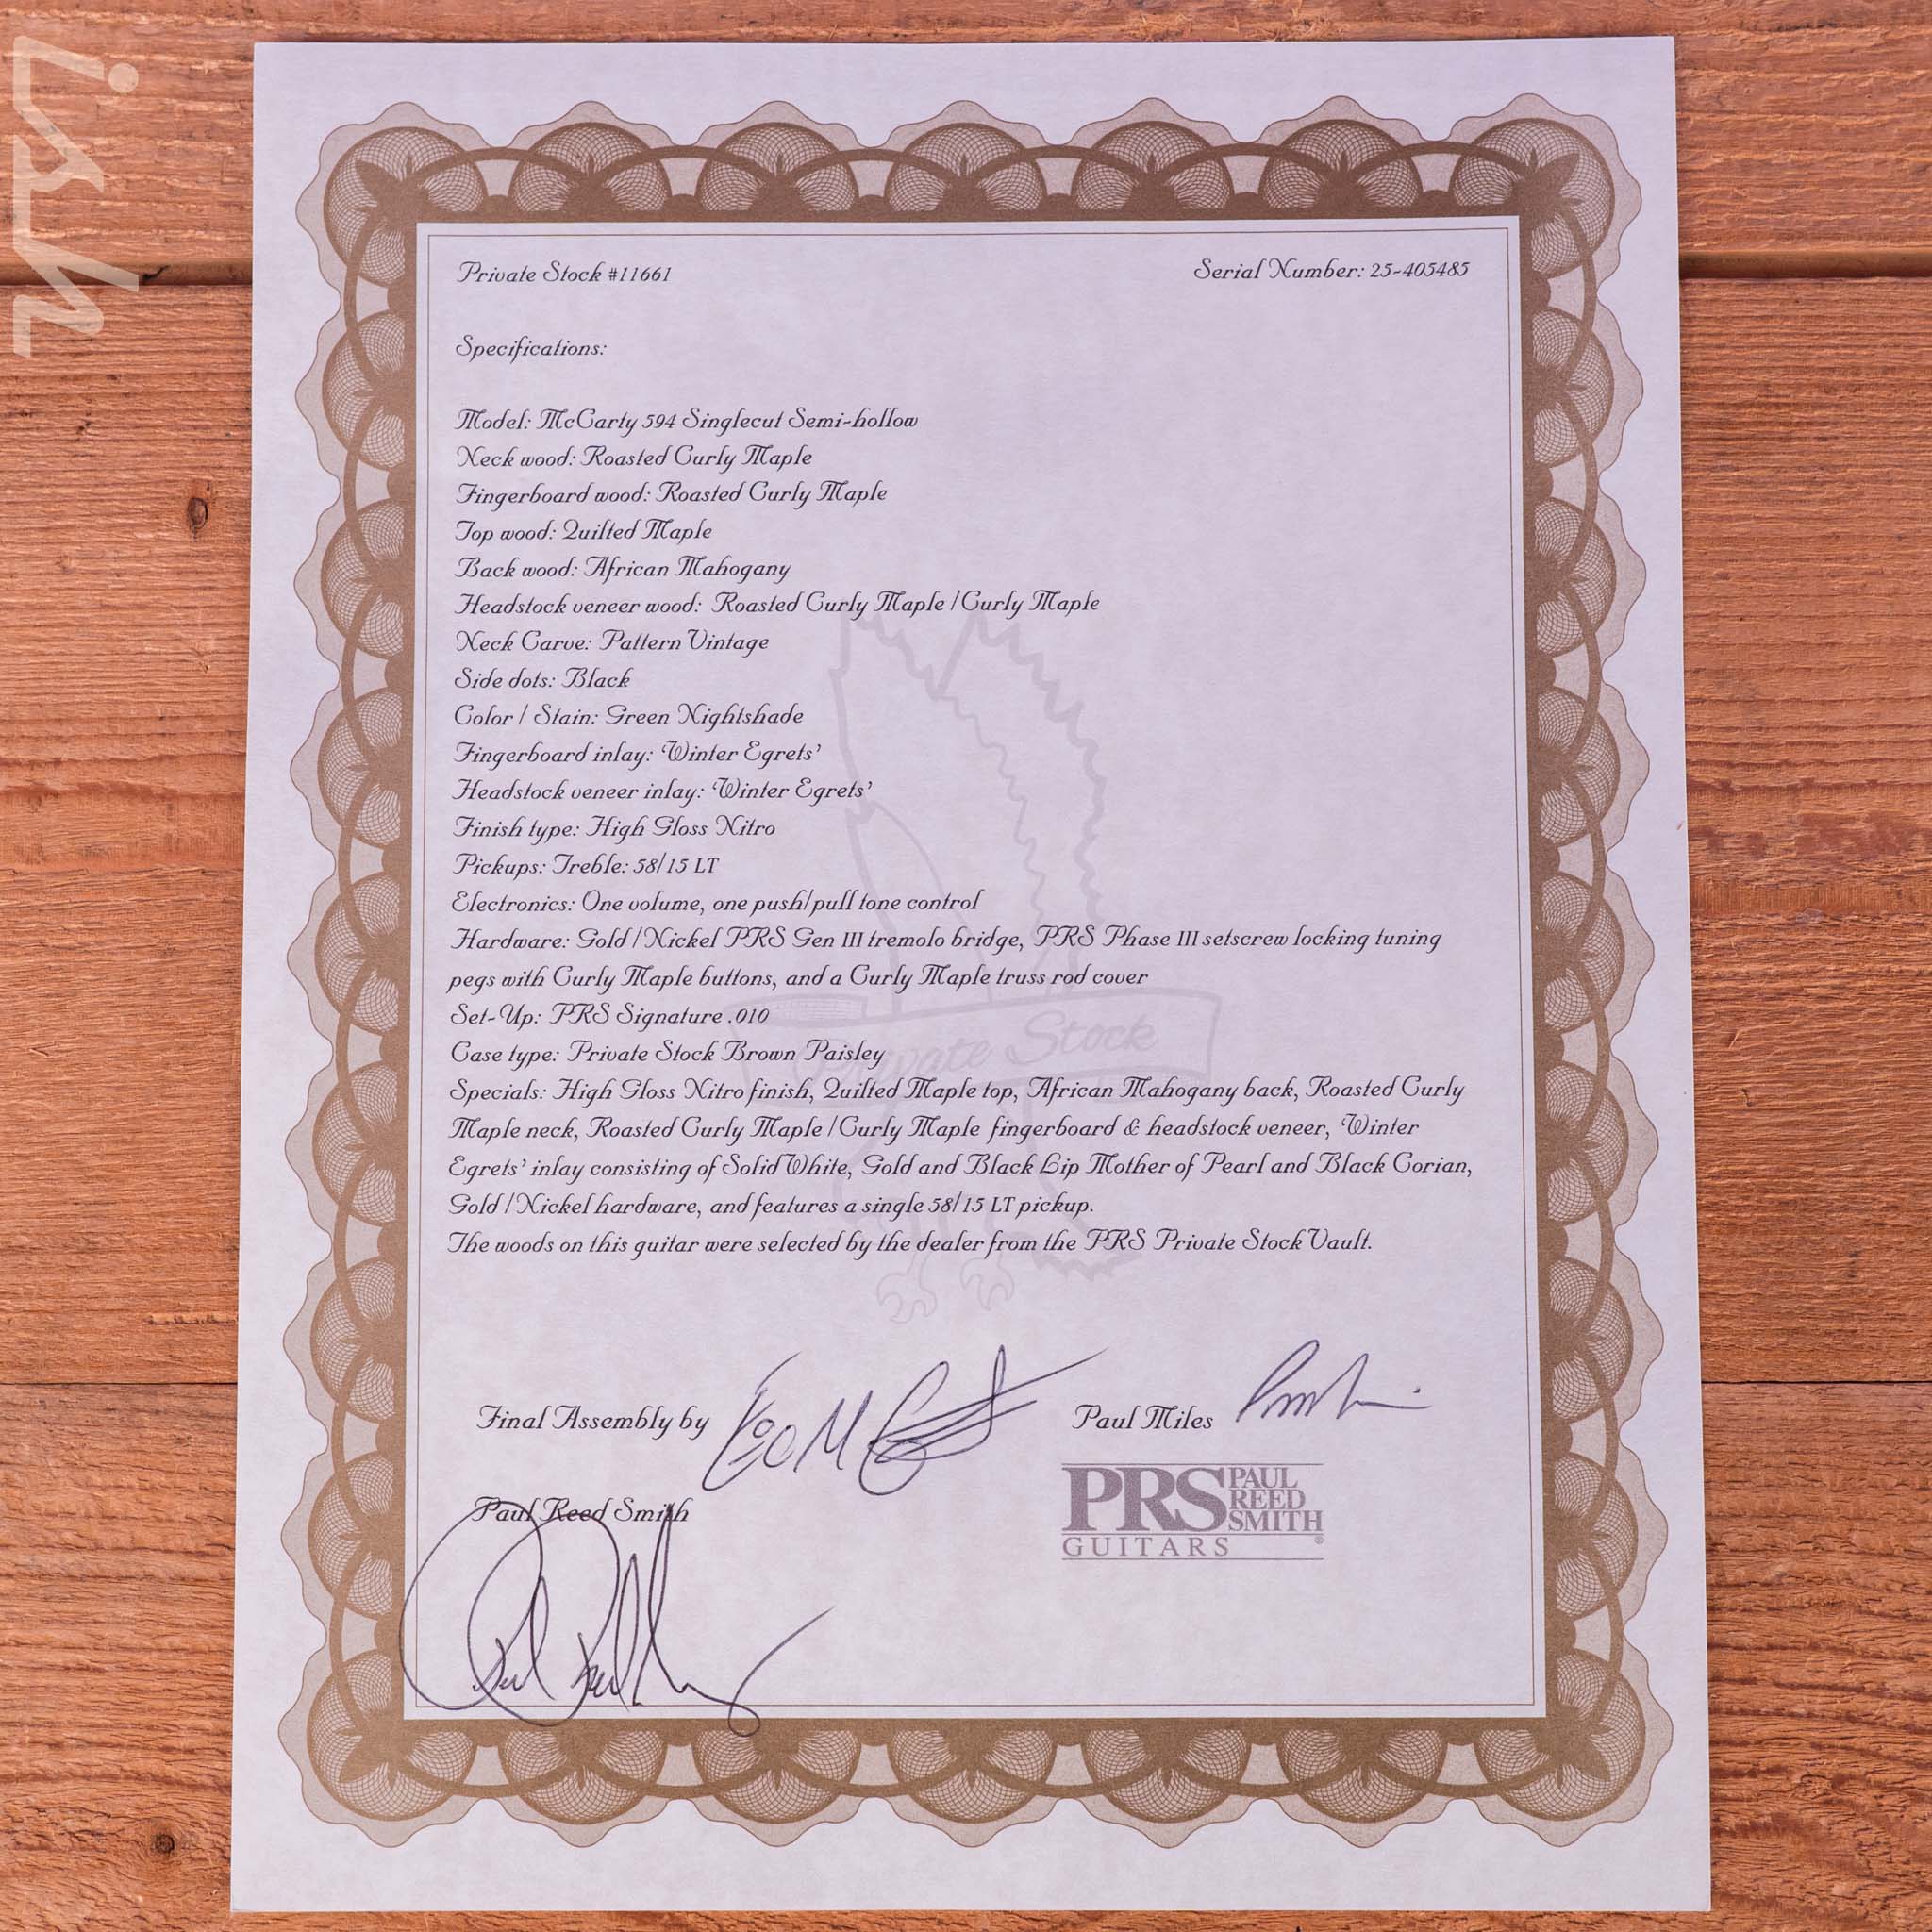 ish
Private Stock #11661
Serial Number: 25-405485
Specifications:
Model: McCarty 594 Singlecut Semi-hollow
Neck wood: Roasted Curly Maple
Fingerboard wood: Roasted Curly Maple
Top wood: Quilted Maple
Back wood: African Mahogany
Headstock veneer wood: Roasted Curly Maple / Curly Maple
Neck Carve: Pattern Vintage
Side dots: Black
Color / Stain: Green Nightshade
Fingerboard inlay: 'Winter Egrets'
Headstock veneer inlay: 'Winter Egrets'
Finish type: High Gloss Nitro
Pickups: Treble: 58/15 LT
Electronics: One volume, one push/pull tone control
Hardware: Gold / Nickel PRS Gen III tremolo bridge, PRS Phase III setscrew locking tuning
pegs with Curly Maple buttons, and a Curly Maple truss rod cover
Set-Up: PRS Signature .010
Case type: Private Stock Brown Paisley
Private Stock
Specials: High Gloss Nitro finish, Quilted Maple top, African Mahogany back, Roasted Curly
Maple neck, Roasted Curly Maple / Curly Maple fingerboard & headstock veneer, 'Winter
Egrets' inlay consisting of Solid White, Gold and Black Lip Mother of Pearl and Black Corian,
Gold / Nickel hardware, and features a single 58/15 LT pickup.
The woods on this guitar were selected by the dealer from the PRS Private Stock Vault.
Final Assembly by
Paul Miles
Paul Reed Smith
PRS PAUL REED SMITH
GUITARS